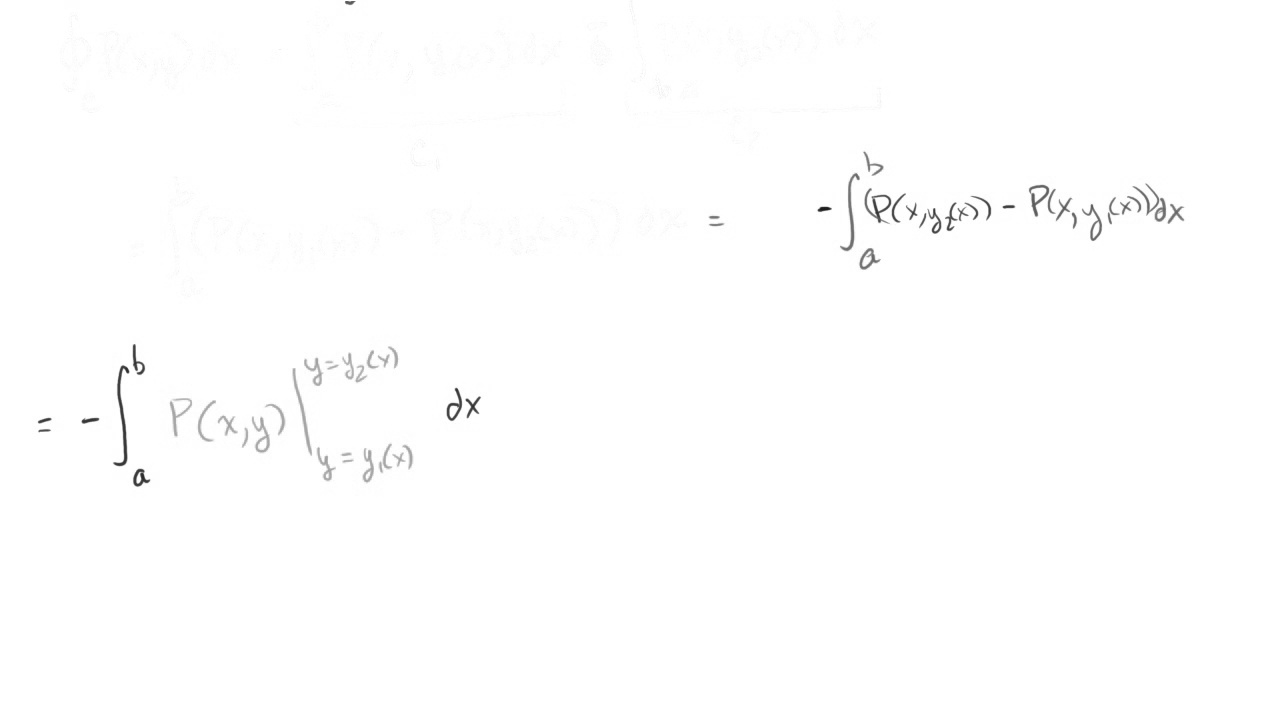 ∮_C P(x,y) dx = ∫ P(x, y₁(x)) dx ∫ P(x, y₂(x)) dx
C₁ C₂
= ∫_a^b (P(x, y₁(x)) - P(x, y₂(x))) dx = - ∫_a^b (P(x, y₂(x)) - P(x, y₁(x))) dx
= - ∫_a^b P(x,y) |_{y = y₁(x)}^{y = y₂(x)} dx